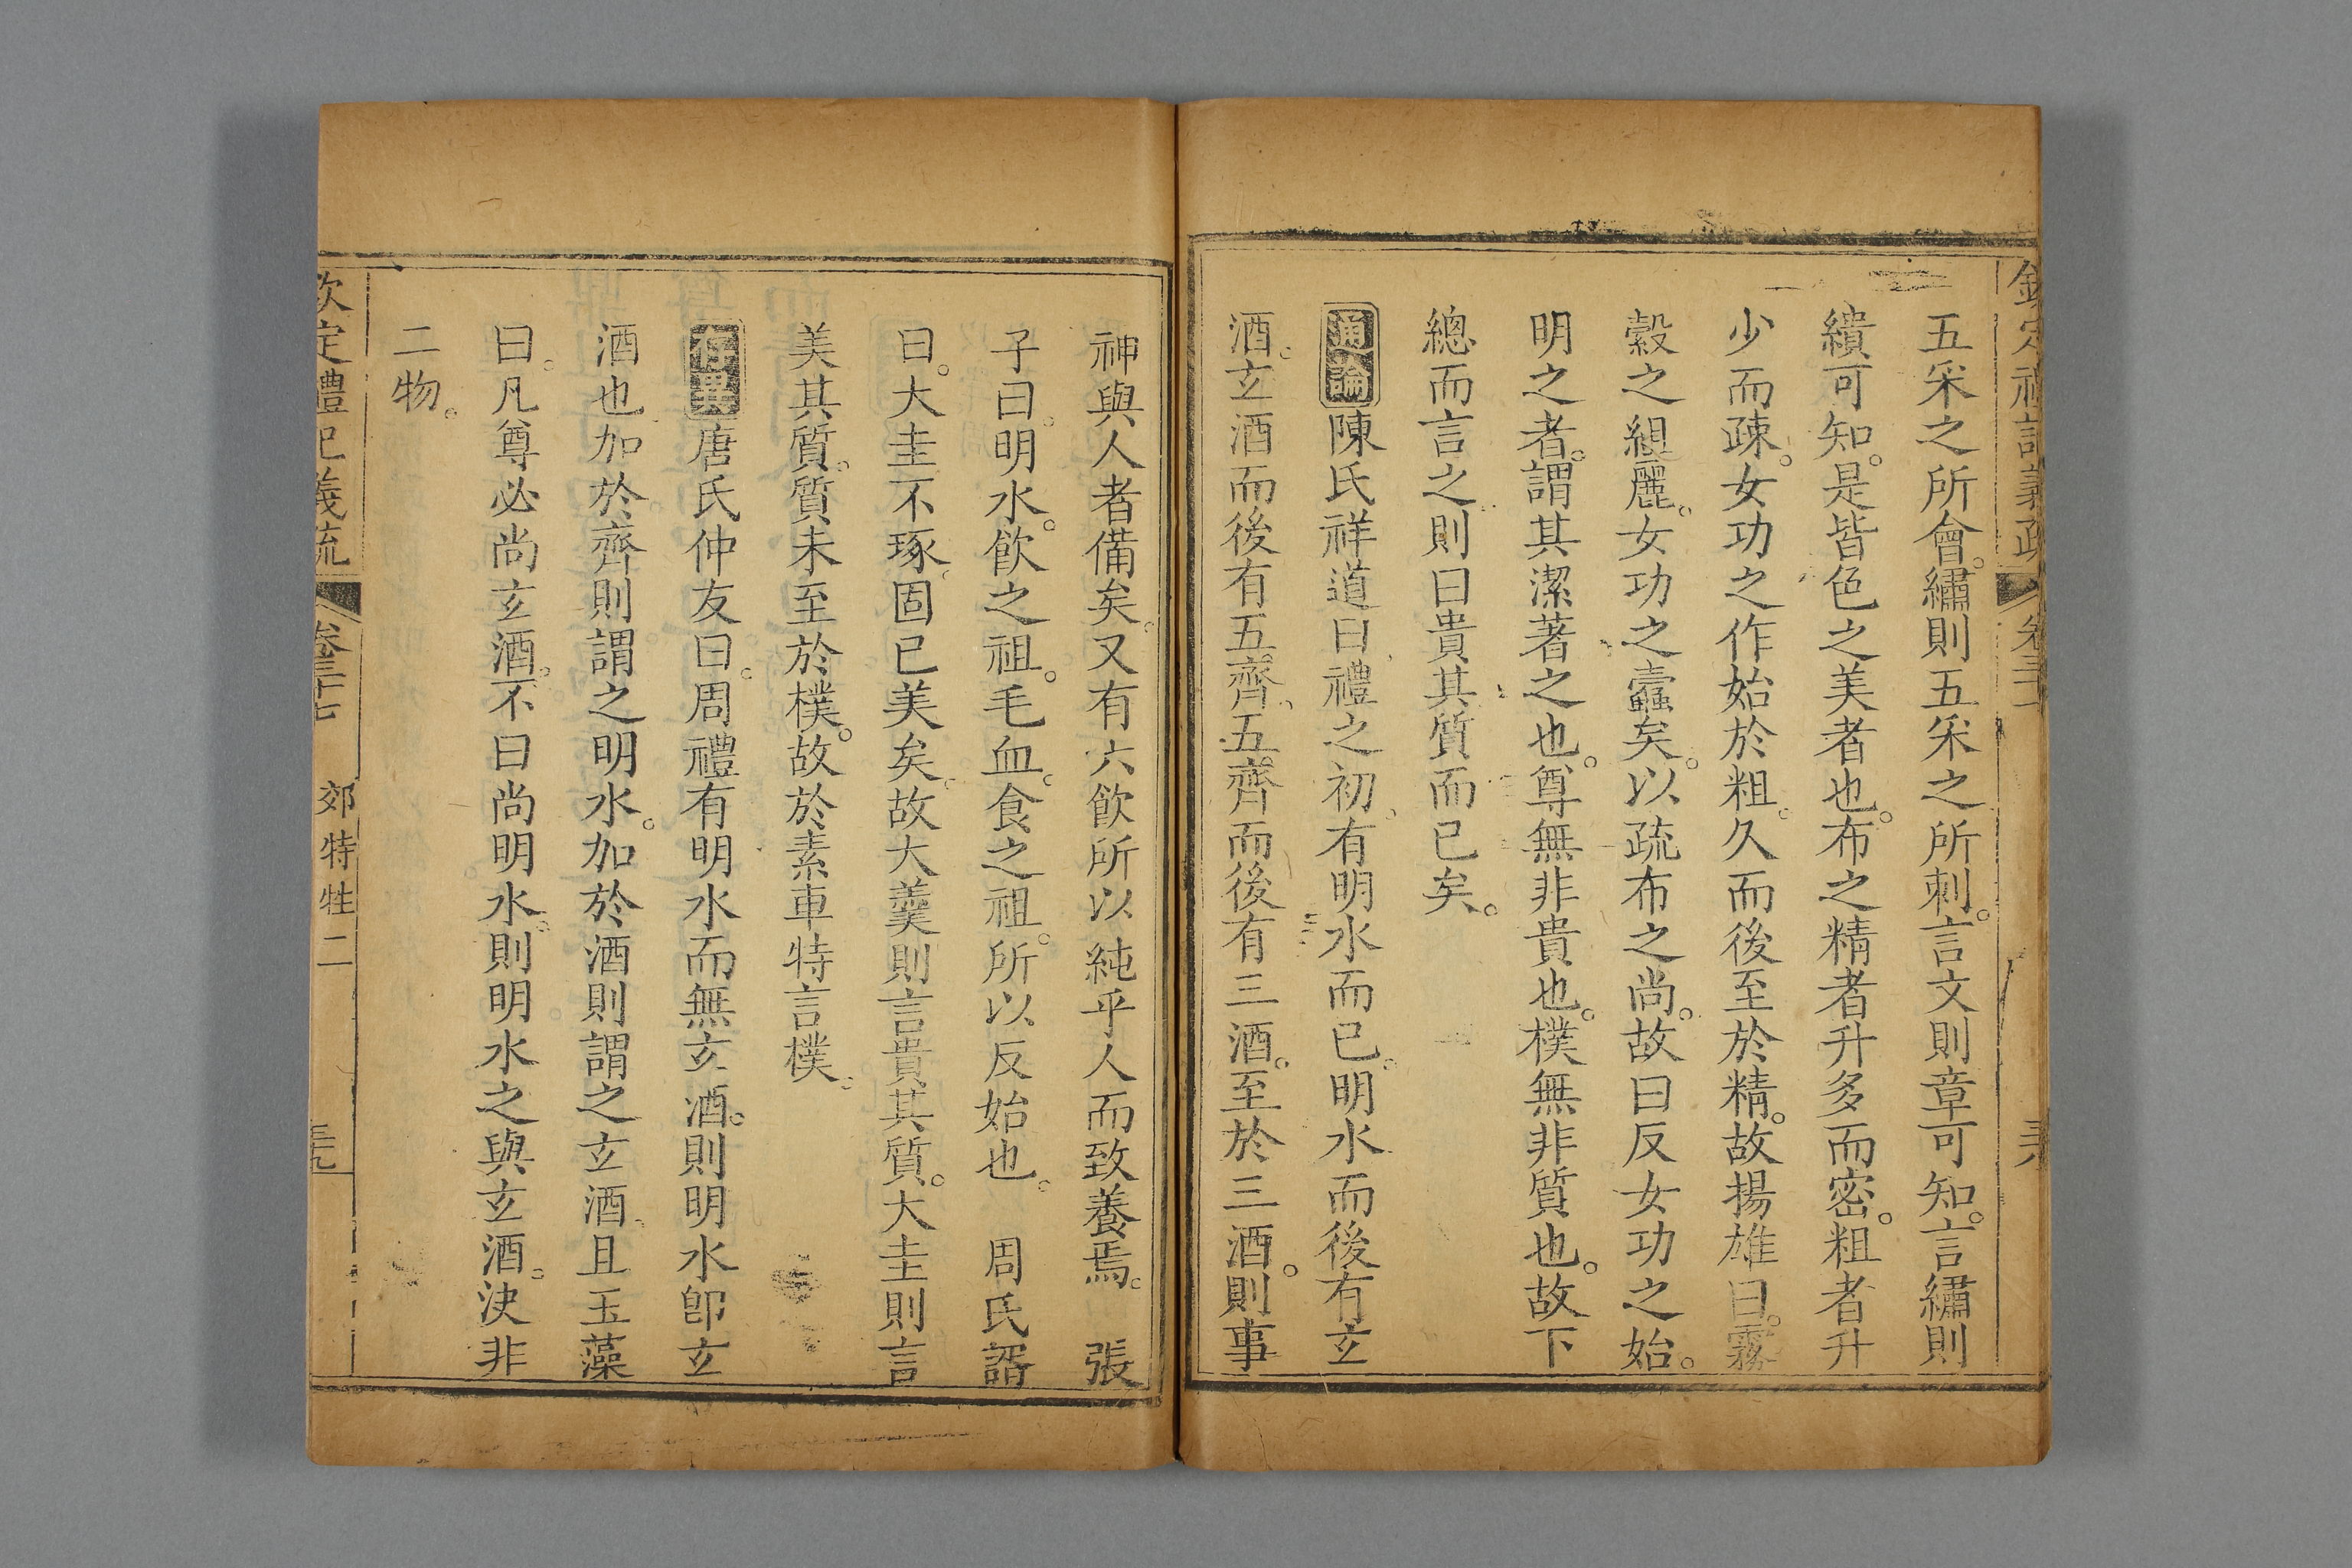 欽定禮記義疏 卷三十七
五采之所會。繡則五采之所刺。言文則章可知。言繡則
繢可知。是皆色之美者也。布之精者升多而密。粗者升
少而疎。女功之作始於粗。久而後至於精。故揚雄曰。霧
縠之組麗。女功之蠹矣。以疏布之尚。故曰反女功之始。
明之者。謂其潔著之也。尊無非貴也。樸無非質也。故下
總而言之。則曰貴其質而已矣。
通論陳氏祥道曰禮之初。有明水而已。明水而後有玄
酒。玄酒而後有五齊。五齊而後有三酒。至於三酒。則事
神與人者備矣。又有六飲所以純乎人而致養焉。 張
子曰。明水。飲之祖。毛血。食之祖。所以反始也。 周氏諝
曰。大圭不琢。固已美矣。故大羹則言貴其質。大圭則言
美其質。質未至於樸。故於素車特言樸。
存異唐氏仲友曰。周禮有明水而無玄酒。則明水卽玄
酒也。加於齊則謂之明水。加於酒則謂之玄酒。且玉藻
曰。凡尊必尚玄酒。不曰尚明水。則明水之與玄酒。決非
二物。
欽定禮記義疏 卷三十七 郊特牲二 三九